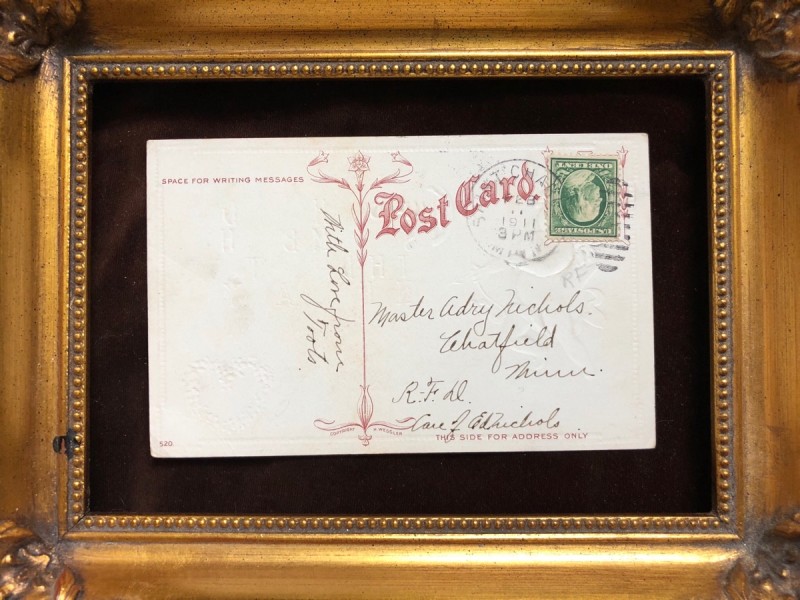 SPACE FOR WRITING MESSAGES
Post Card.
1911
3 PM
MINN
With Love from
Toots.
Master Adry Nichols.
Chatfield
Minn.
R.F.D.
Care of Ed Nichols
520.
COPYRIGHT H WESSLER
THIS SIDE FOR ADDRESS ONLY
ONE CENT
U.S. POSTAGE